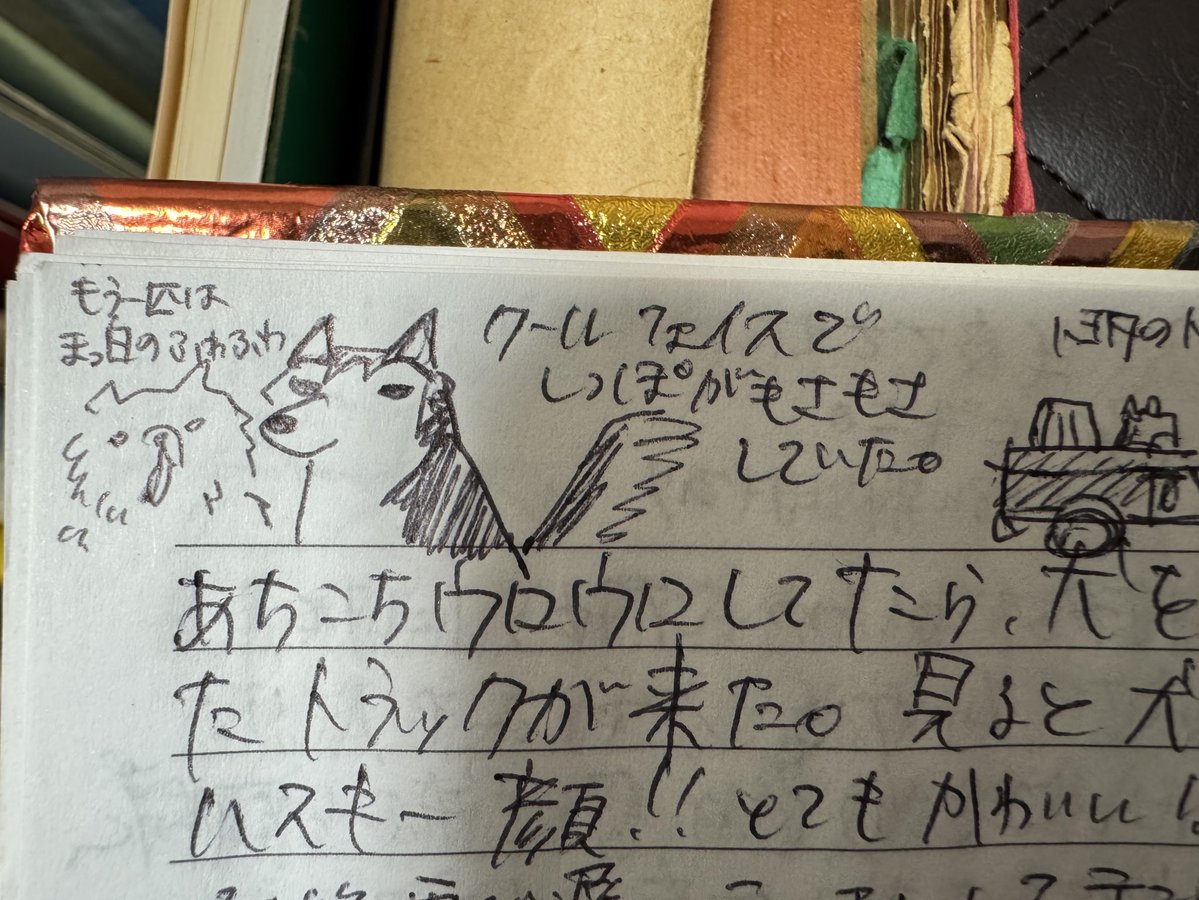 もう一匹は
まっ白のふわふわ
クールフェイスで
しっぽがもさもさ
していた。
トヨタのト
あちこちウロウロしてたら、犬を
たトラックが来た。見ると犬
ハスキー顔!! とてもかわいい!